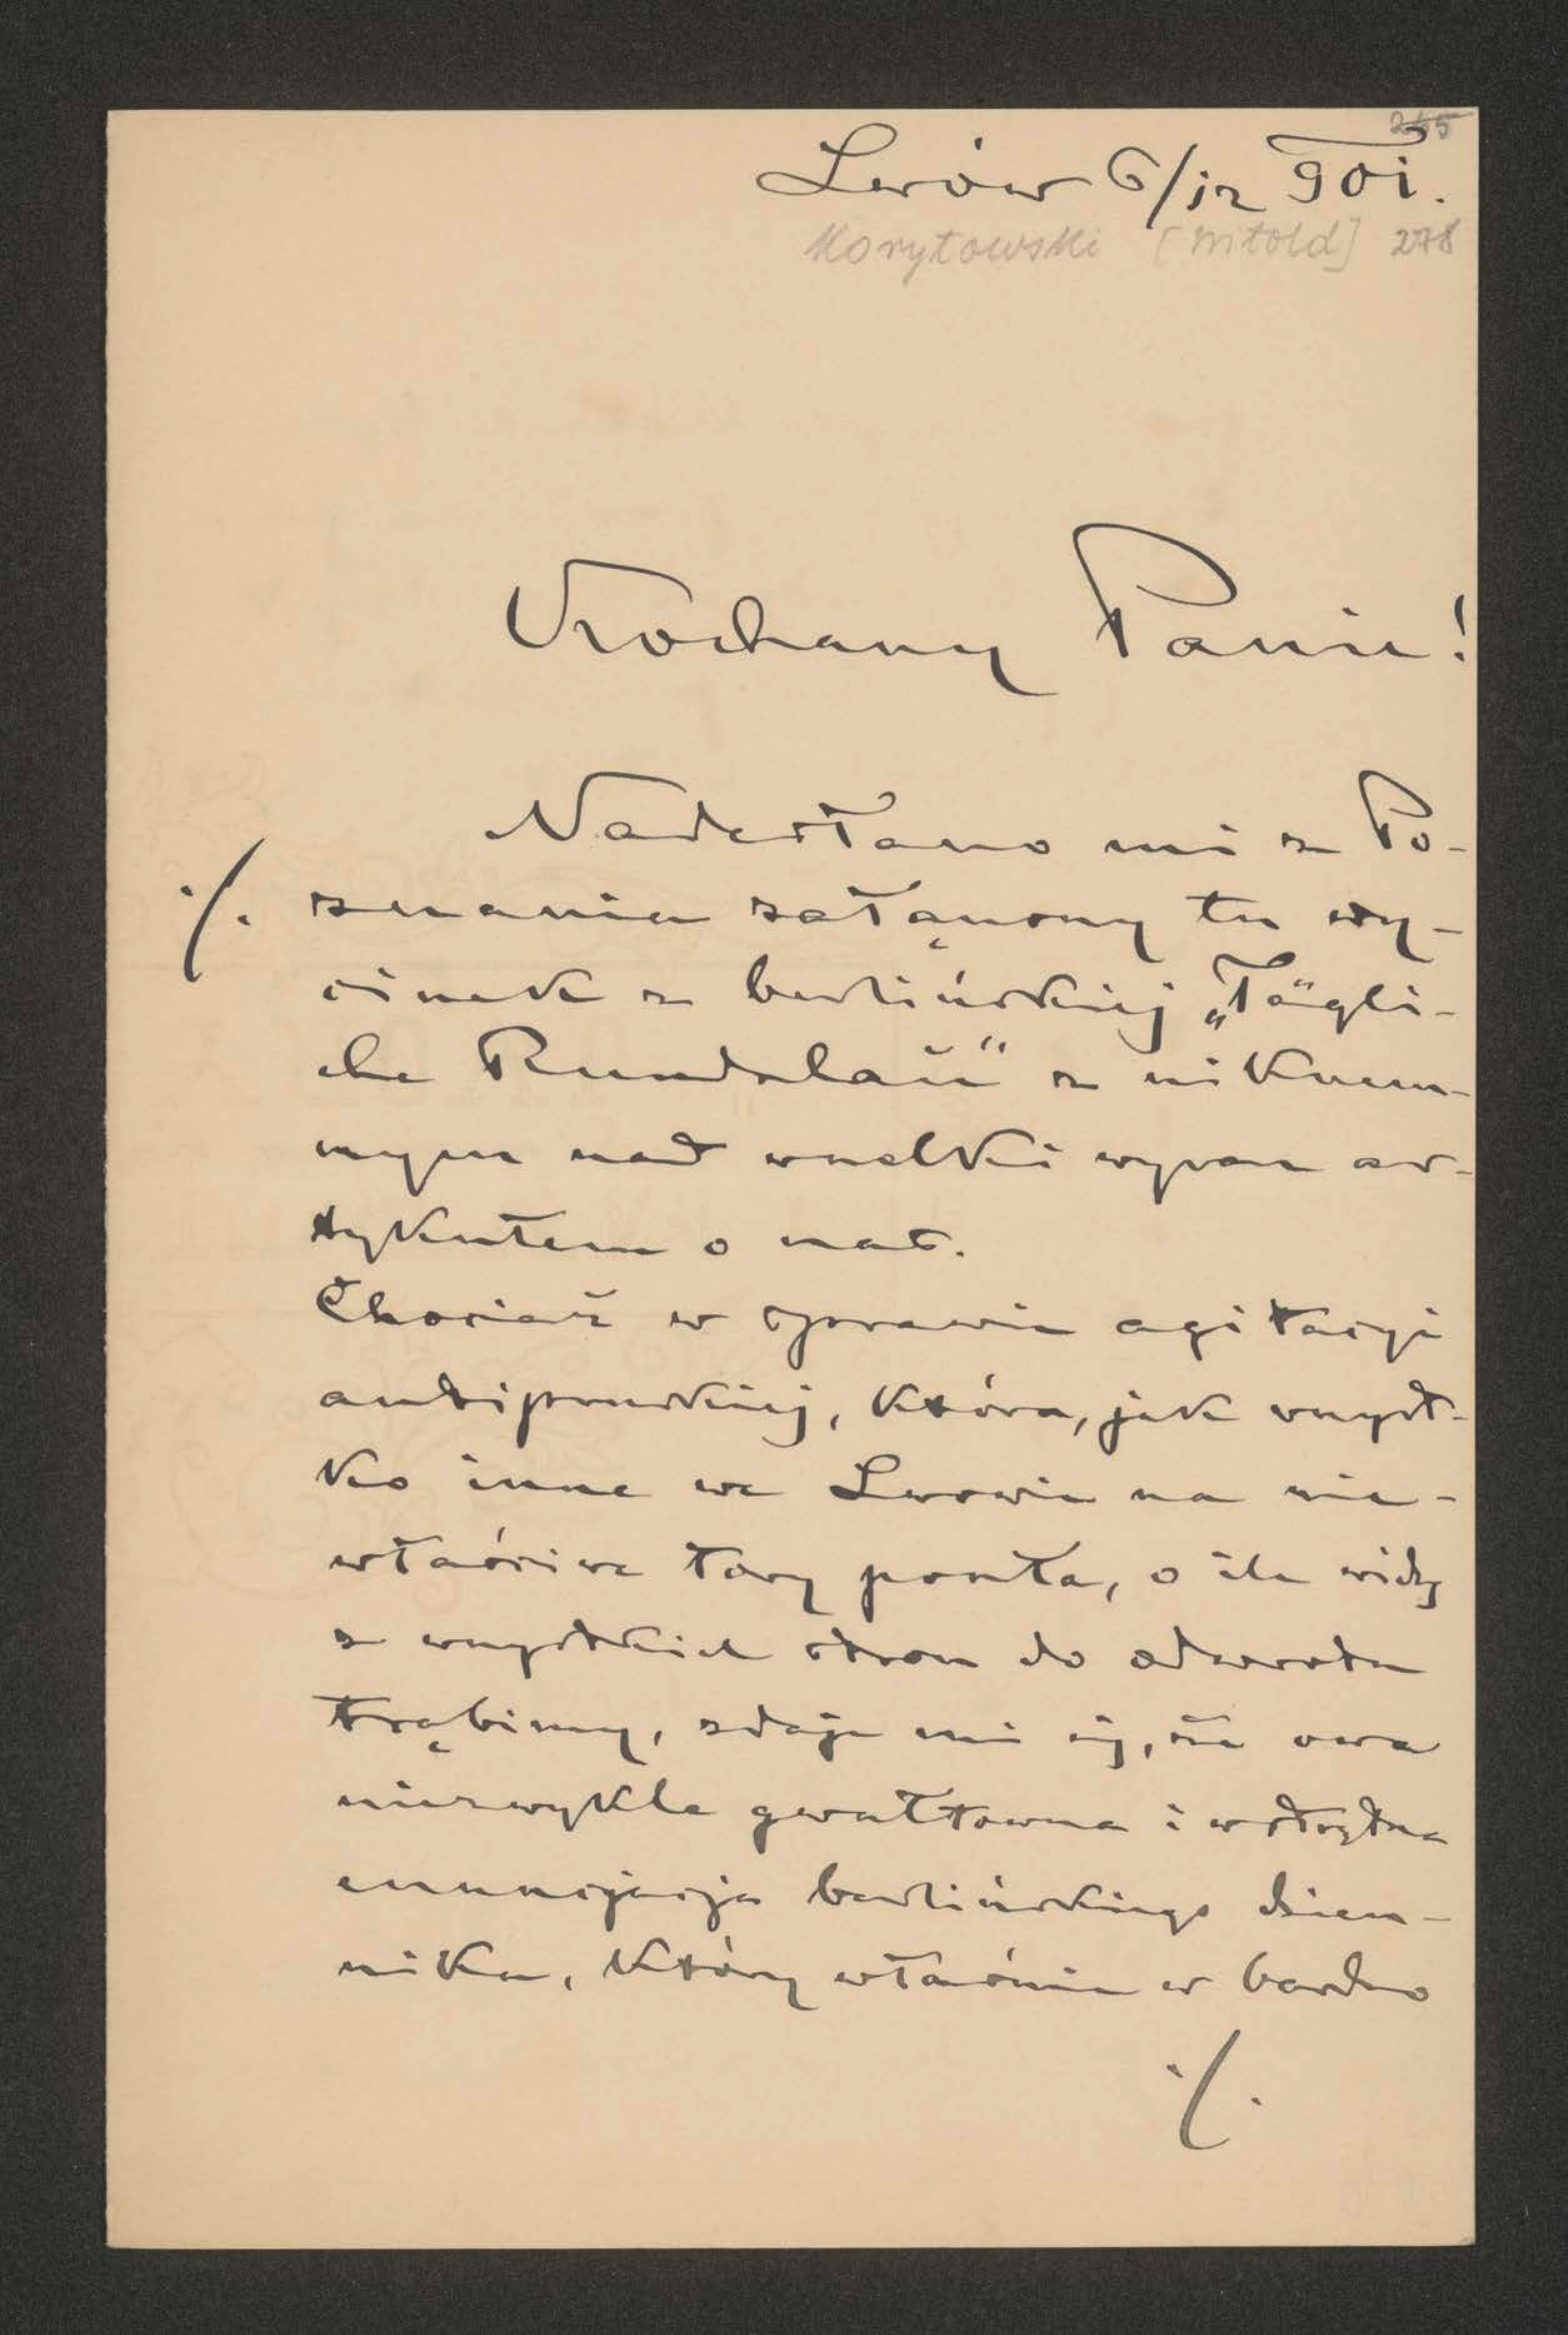 265
Lwów 6/12 901.
Korytowski [Witold] 278
Kochany Panie!
Nadesłano mi z Po-
./. znania załączony tu wy-
cinek z berlińskiej „Tägli-
che Rundschau" z nikczem-
nym nad wszelki wyraz ar-
tykułem o nas.
Chociaż w sprawie agitacyi
antipruskiej, która, jak wszyst-
ko inne we Lwowie na nie-
właściwe tory poszła, o ile widzę
z wszystkich stron do odwrotu
trąbimy, zdaje mi się, że owa
niezwykle gwałtowna i wstrętna
enuncyacja berlińskiego dzien-
nika, który właśnie w bardzo
./.